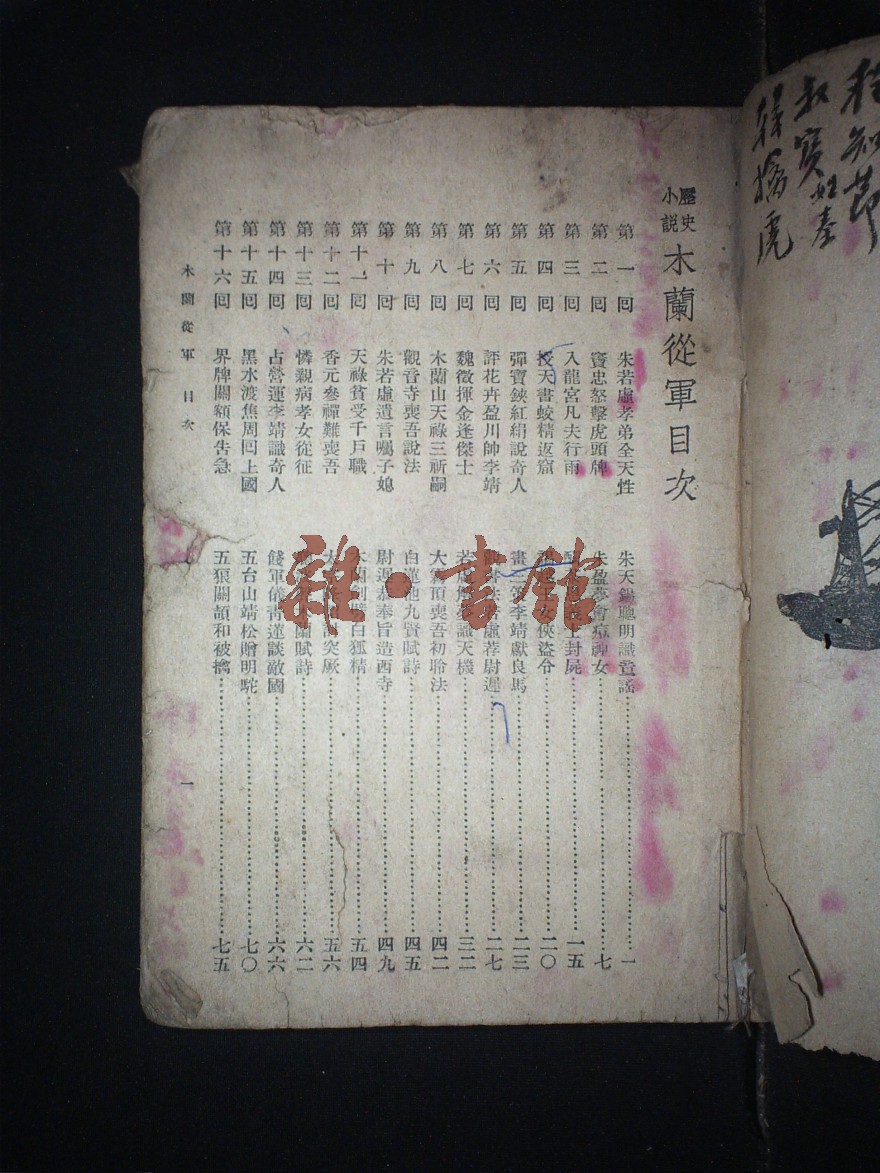 程知節
叔寶姓秦
韓擒虎
歷史小說 木蘭從軍目次
第一囘 朱若虛孝弟全天性 朱天錫聰明識童謠 一
第二囘 竇忠怒擊虎頭牌 朱盈夢會痘神女 七
第三囘 入龍宮凡夫行雨 土封屍 一五
第四囘 授天書蛟精返窟 女俠盜令 二〇
第五囘 彈寶鋏紅絹說奇人 李靖獻良馬 二三
第六囘 評花卉盈川帥李靖 虛荐尉遲 二七
第七囘 魏徵揮金逢傑士 若虛 識天機 三二
第八囘 木蘭山天祿三祈嗣 大 頂喪吾初聆法 四二
第九囘 觀音寺喪吾說法 白蓮池九賢賦詩 四五
第十囘 朱若虛遺言囑子媳 尉遲恭奉旨造西寺 四九
第十一囘 天祿貧受千戶職 木蘭劍 白狐精 五四
第十二囘 香元參禪難喪吾 討突厥 五六
第十三囘 憐親病孝女從征 蘭賦詩 六二
第十四囘 占營運李靖識奇人 餞軍儀靑蓮談敵國 六六
第十五囘 黑水渡焦周囘上國 五台山靖松贈明駝 七〇
第十六囘 界牌關額保告急 五狼關頡和被擒 七五
木蘭從軍 目次 一
雜·書館